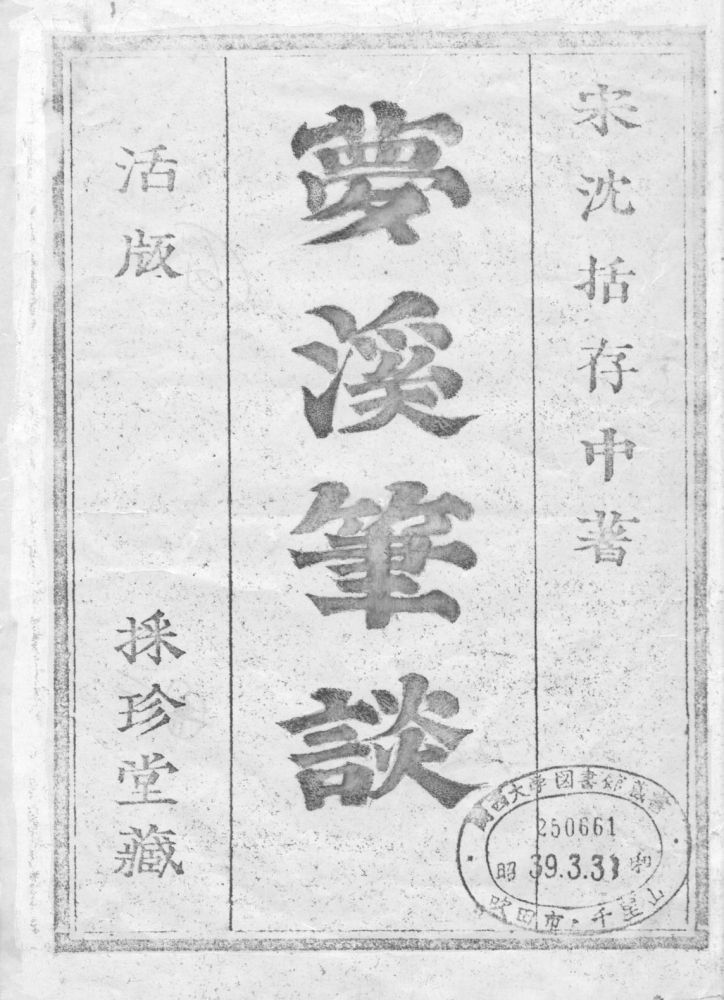 宋沈括存中著
夢溪筆談
活版
採珍堂藏
関西大学図書館蔵書
250661
昭和
39.3.31
吹田市・千里山